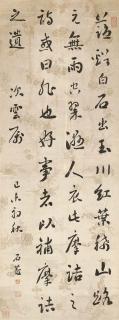 藍谿白石出玉川紅葉稀山路
元無雨空翠濕人衣此摩詰之
詩或曰非也好事者以補摩詰
之遺 次雲屬
初秋 石菴